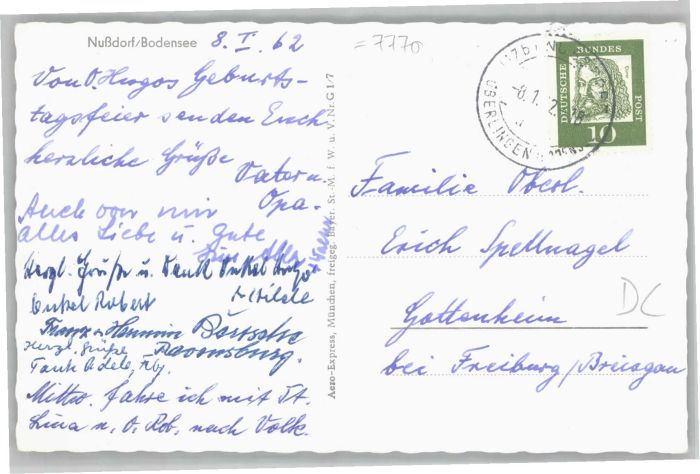 Nußdorf/Bodensee 8. I. 62
= 7770
Von O. Hugos Geburts-
tagsfeier senden Euch
herzliche Grüße
Vater u.
Opa.
Auch von mir
alles Liebe u. Gute
Herzl. Grüße u. Dank Onkel Hugo
Onkel Robert + Hilde
Franz u. Hannia Bertsche
Herzl. Grüße Ravensburg.
Tante Adele, Rbg.
Mittw. fahre ich mit Tt.
Lina u. O. Rob. nach Volk.
Aero-Express, München, freigeg. Bayer. St.-M. f. W. u. V. Nr. G 1/7
ÜBERLINGEN
-8.1. 2.-18
DEUTSCHE BUNDES POST
10
Familie Oberl.
Erich Spellnagel
Gottenheim
bei Freiburg/Breisgau
DC